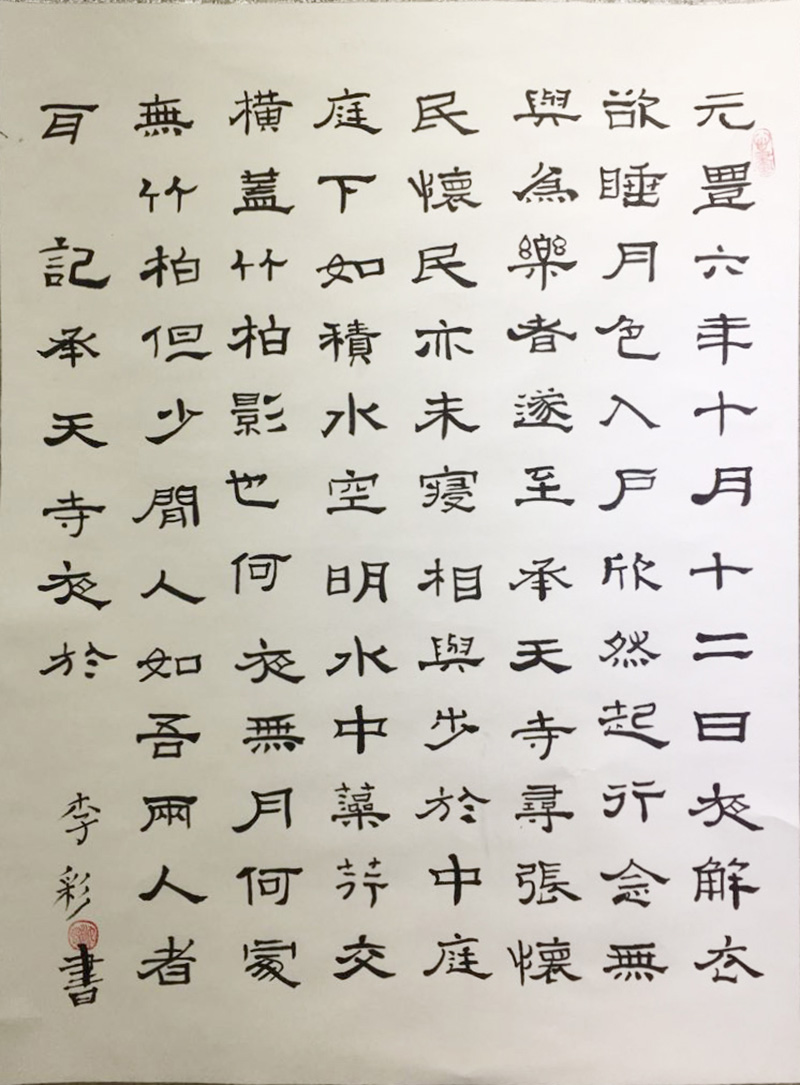 元豐六年十月十二日夜解衣
欲睡月色入戶欣然起行念無
與為樂者遂至承天寺尋張懷
民懷民亦未寢相與步於中庭
庭下如積水空明水中藻荇交
橫蓋竹柏影也何夜無月何家
無竹柏但少閒人如吾兩人者
耳 記承天寺夜於 李彩書